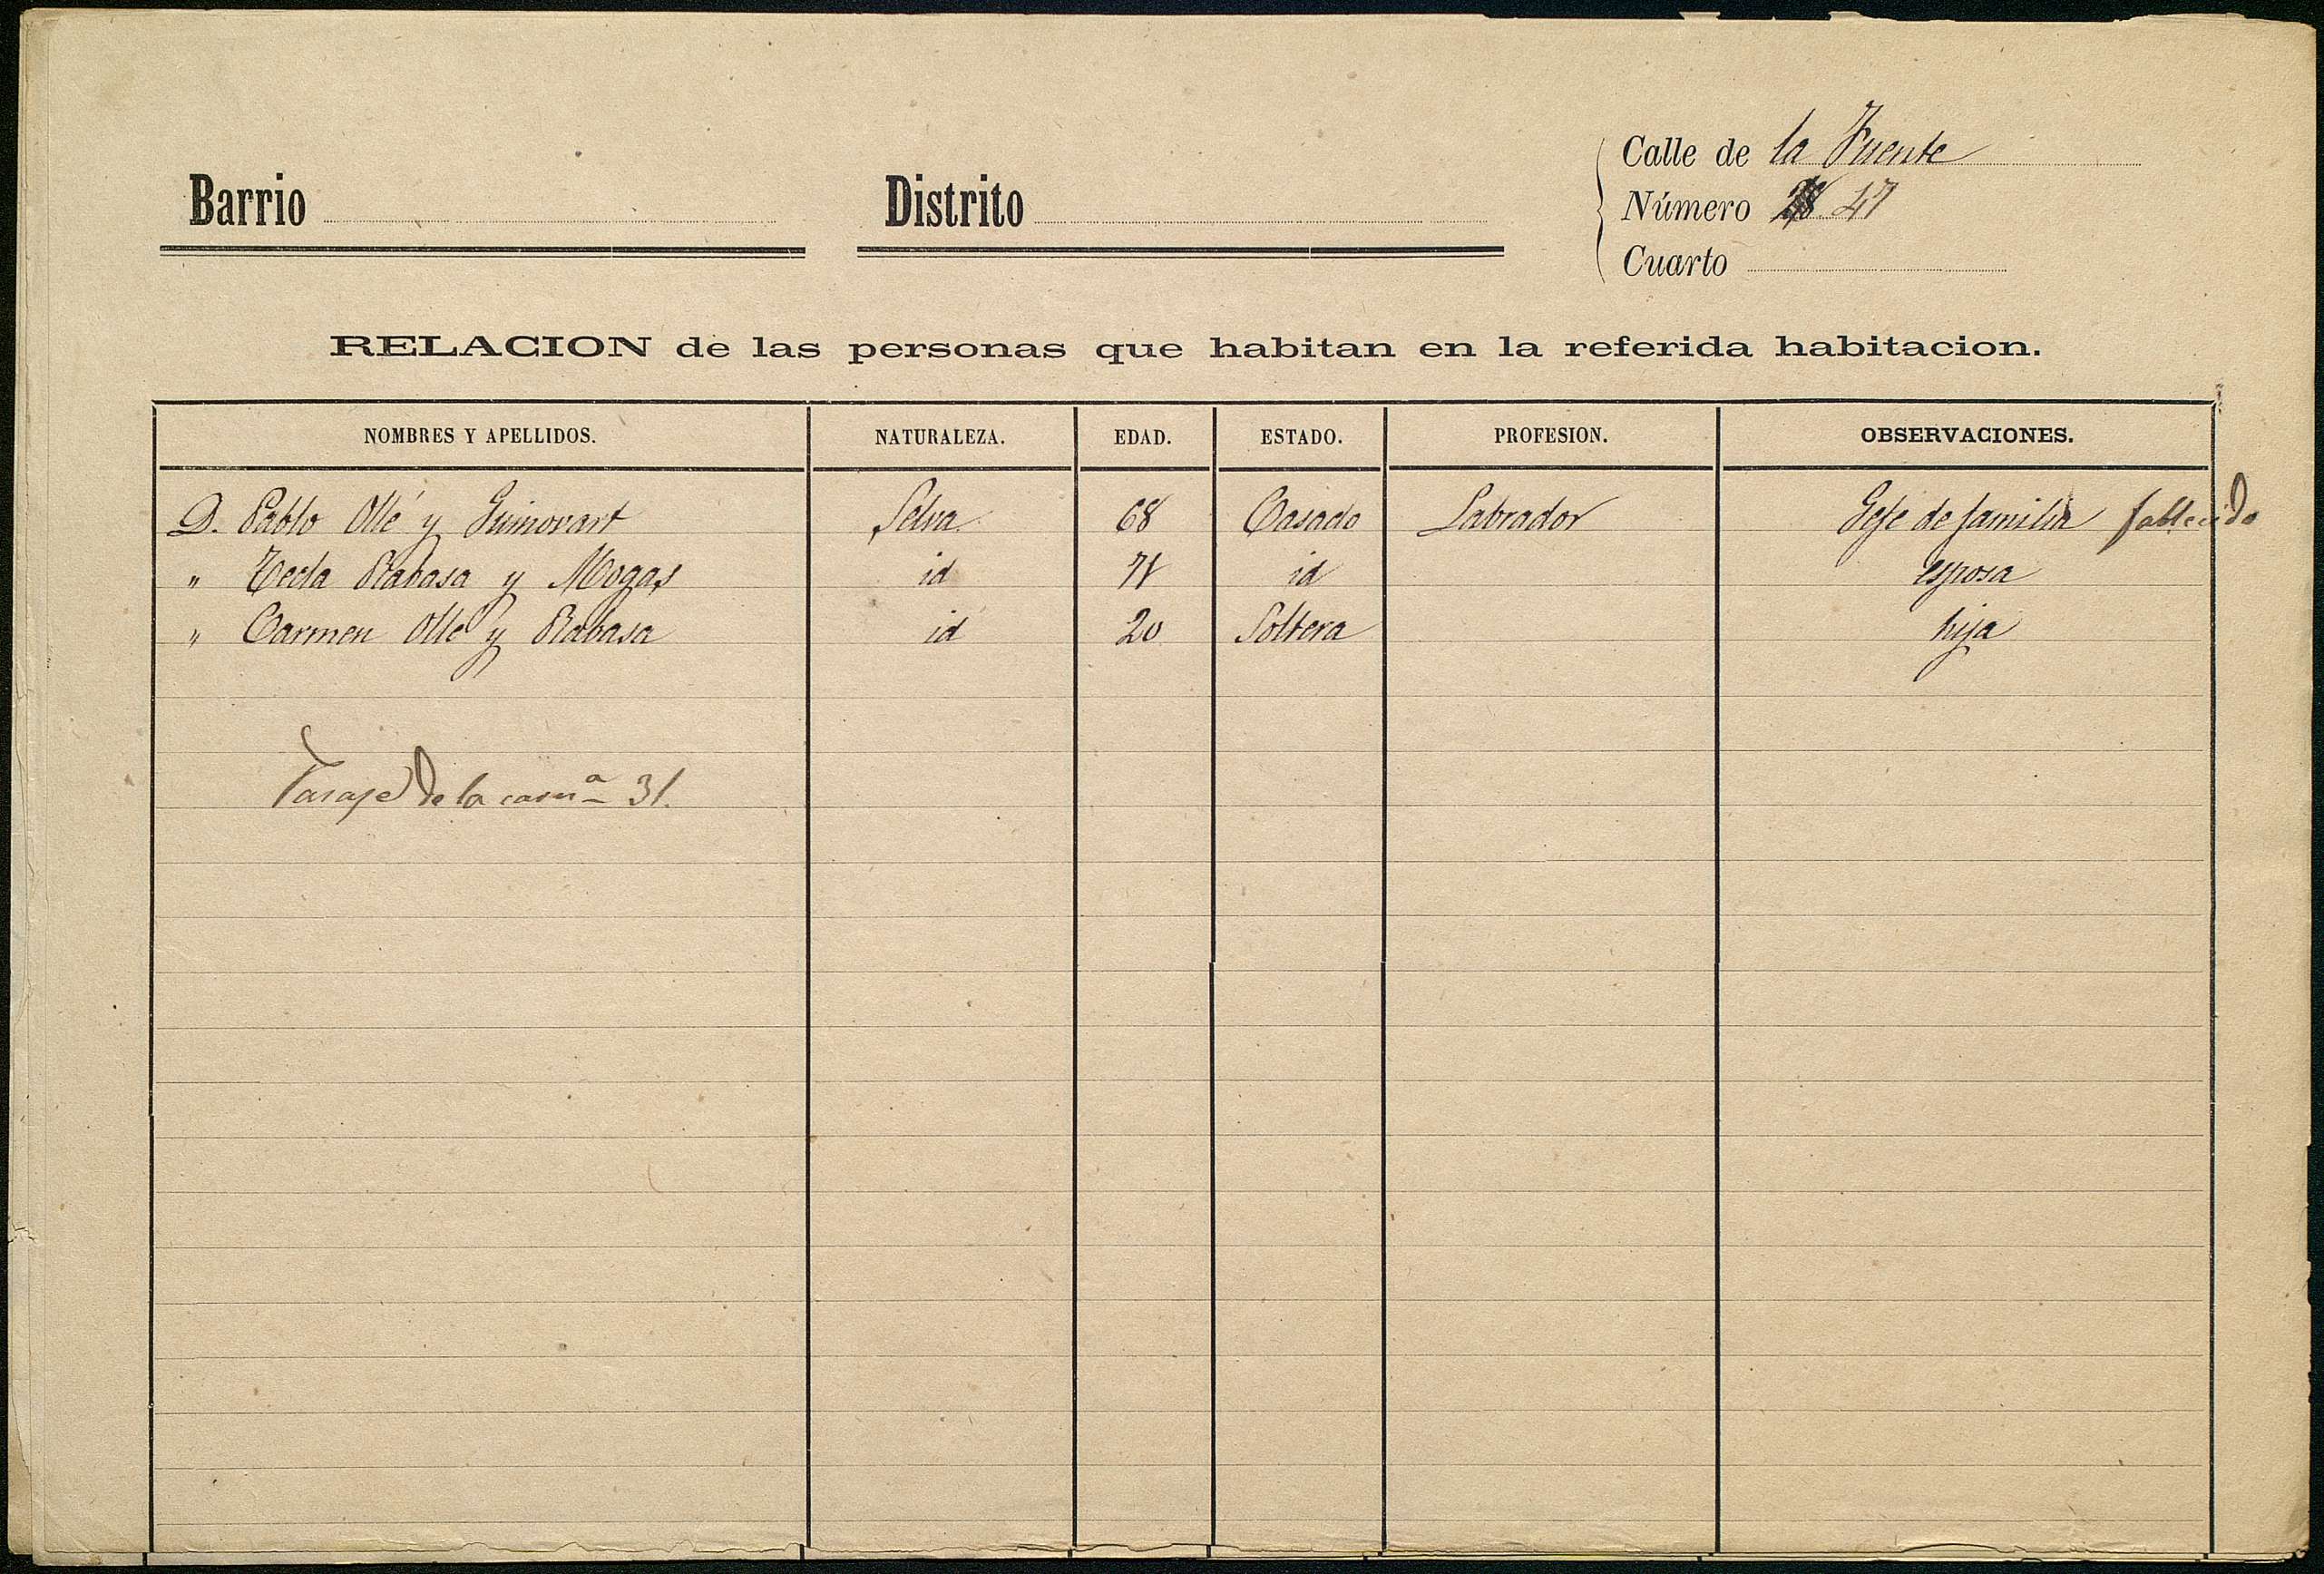 Calle de la Fuente
Barrio
Distrito
Número 28 47
Cuarto
RELACION de las personas que habitan en la referida habitacion.
NOMBRES Y APELLIDOS. NATURALEZA. EDAD. ESTADO. PROFESION. OBSERVACIONES.
D. Pablo Ollé y Guinovart Selva 68 Casado Labrador Gefe de familia fallecido
" Tecla Rabasa y Mogas id 71 id esposa
" Carmen Ollé y Rabasa id 20 Soltera hija
de la casa 31.